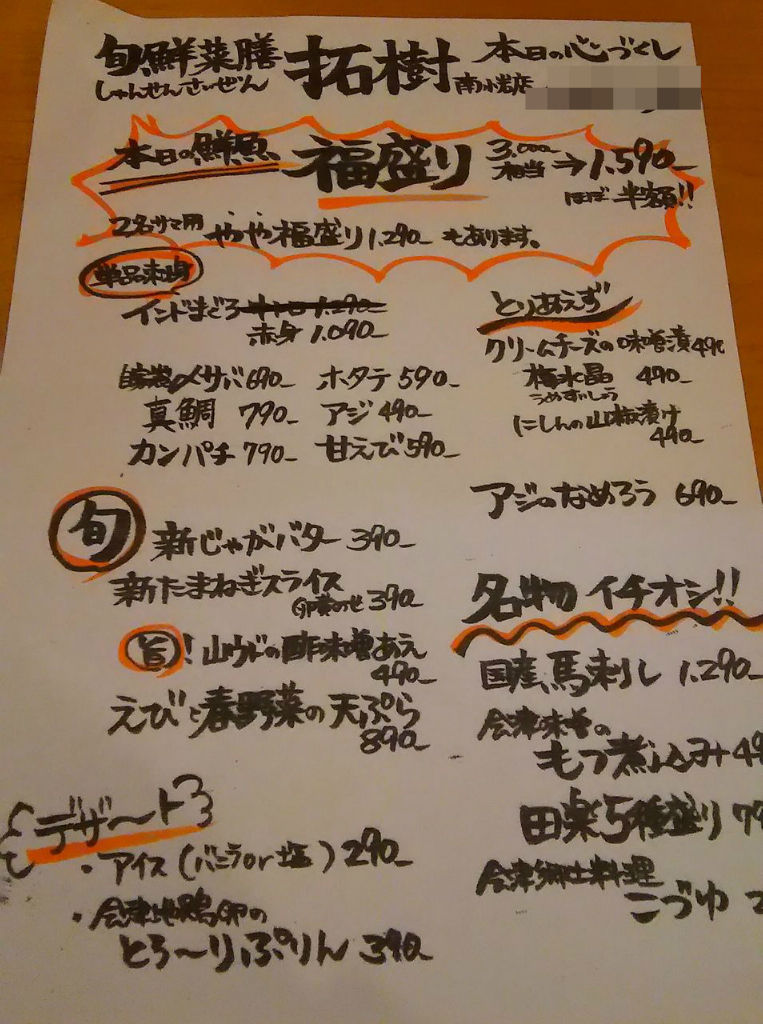 旬鮮菜膳 拓樹 本日の心づくし
しゅんせんさいぜん 南小岩店
本日の鮮魚 福盛り 3,000相当→1,590-
ほぼ半額!!
2名サマ用 やや福盛り1,290- もあります。
単品お刺身
インドまぐろ 中トロ 1,290-
赤身 1,090-
自家製〆サバ 690- ホタテ 590-
真鯛 790- アジ 490-
カンパチ 790- 甘えび 590-
とりあえず
クリームチーズの味噌漬 490
梅水晶 490-
うめすいしょう
にしんの山椒漬け
490-
アジのなめろう 690-
旬 新じゃがバター 390-
新たまねぎスライス
卵黄のせ 390-
旨! 山ウドの酢味噌あえ
490-
えびと春野菜の天ぷら
890-
名物 イチオシ!!
国産馬刺し 1,290-
会津味噌の
もつ煮込み 49
田楽5種盛り 79
会津郷土料理
こづゆ
デザ〜ト
・アイス(バニラor塩) 290-
・会津地鶏卵の
とろ〜りぷりん 390-